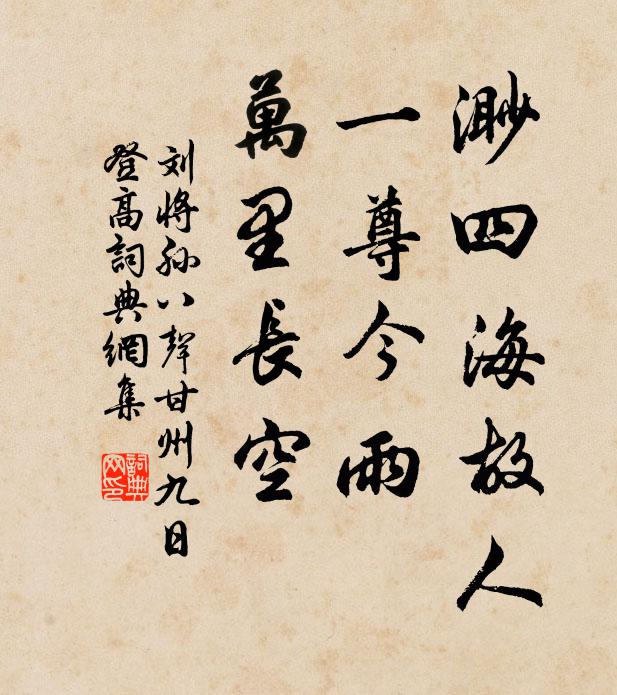 渺四海故人
一尊今雨
萬里長空
刘將孙八聲甘州九日
登高詞典網集
詞典
网印